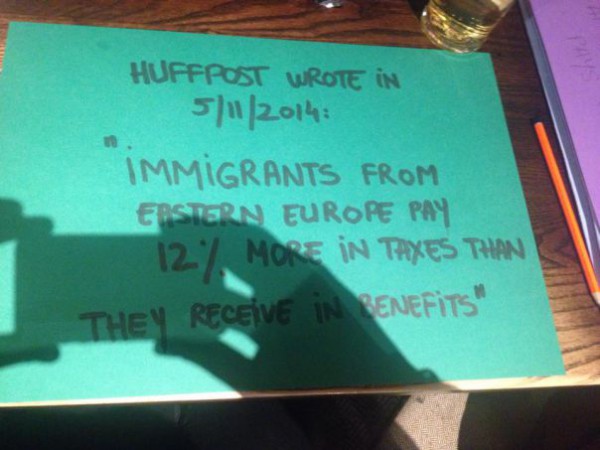 HUFFPOST WROTE iN
5/11/2014:
"iMMiGRANTS FROM
EASTERN EUROPE PAY
12% MORE iN TAXES THAN
THEY RECEiVE iN BENEFiTS"